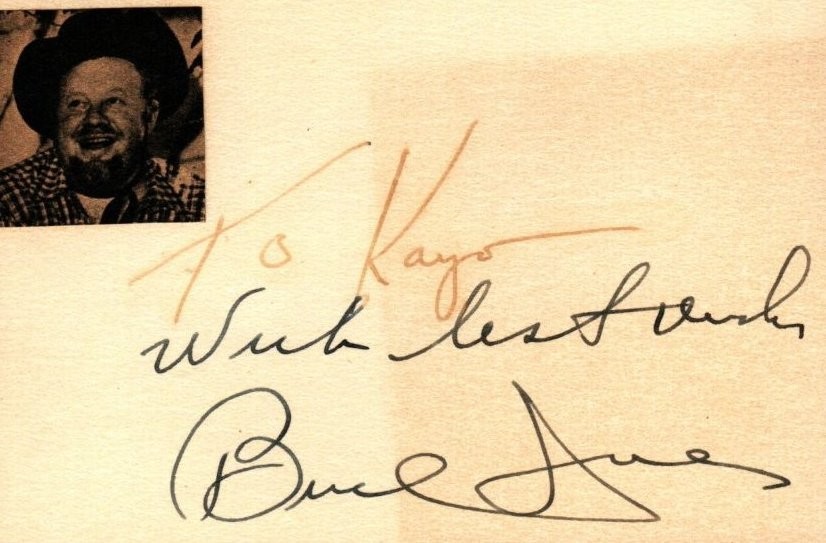 To Kayo
With best wishes
Burl Ives